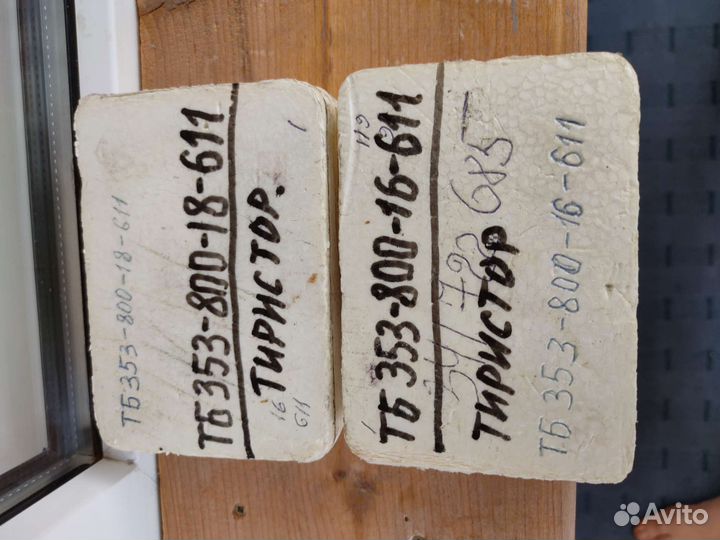 ТБ353-800-18-611
ТБ353-800-18-611
ТИРИСТОР.
1
16
611
611
ТБ 353-800-16-611
723 685
ТИРИСТОР
ТБ 353-800-16-611
Avito